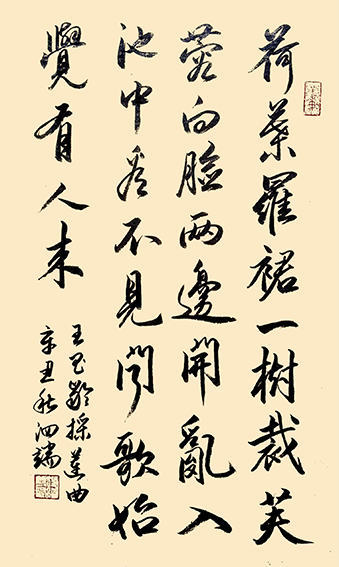 荷葉羅裙一樹裁芙
蓉向臉两邊開亂入
池中看不見聞歌始
覺有人来
王昌齡採蓮曲
辛丑秋泗端